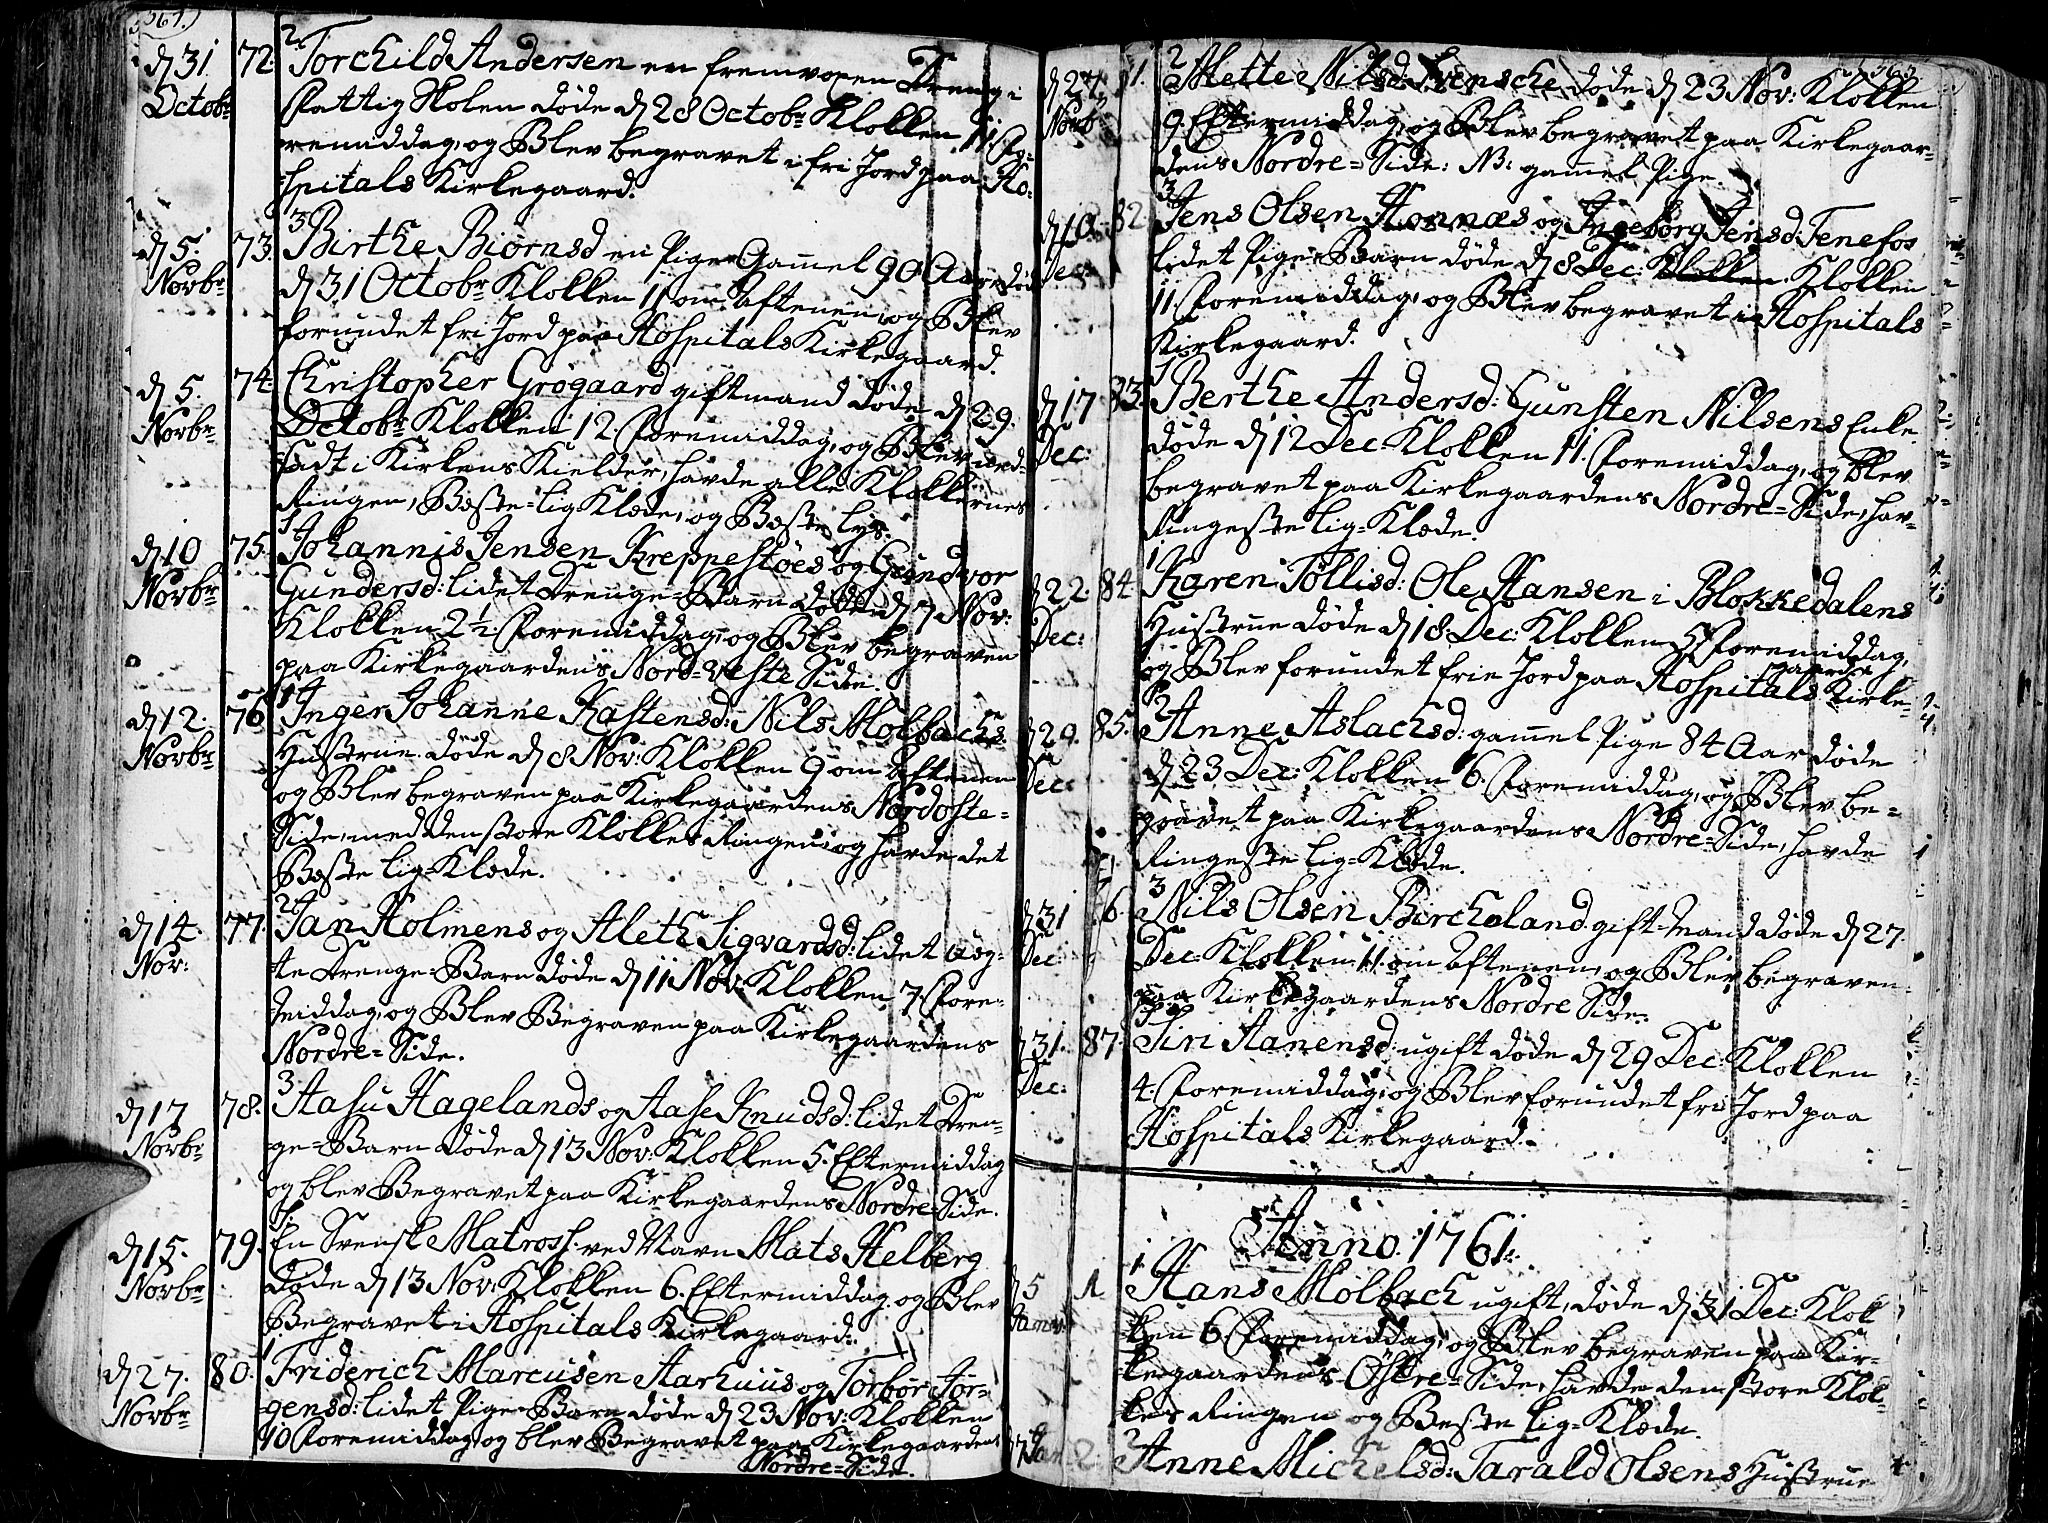 361.)
d 31 Octobr
72.
2. Torchild Andersen en fremvoxen Dreng i
fattig Skolen døde d 28 Octobr Klokken 11 For-
remiddag, og Blev begravet i fri Jord paa Ho-
spitals Kirkegaard.
d 5. Novbr
73.
3 Birthe Biørnsd en Pige Gamel 90 Aar døde
d 31 Octobr Klokken 11 om Aftenen, og Blev
forundet fri Jord paa Hospitals Kirkegaard.
d 5. Novbr
74.
Christopher Grøgaard giftmand døde d 29.
Octobr Klokken 12. Formiddag, og Blev ned-
sadt i Kirkens Kielder, havde alle Klokkernes
Ringen, Beste-lig Klæde, og Beste lys.
d 10 Novbr
75.
1 Johannis Jensen Kreppestøes og Gundvor
Gundersd: lidet Drenge-Barn døde d 7 Nov:
Klokken 2½ Foremiddag, og Blev begraven
paa Kirkegaardens Nord-veste Side.
d 12. Novbr
76
1 Inger Johanne Kastensd: Nils Molbachs
Hustrue døde d 8 Nov: Klokken 9 om Aftenen
og Blev begraven paa Kirkegaardens Nordoste-
Side, med den store Klokkes Ringen, og havde det
Beste lig-Klæde.
d 14. Nov:
77.
2 Jan Holmens og Aleth Sigvardsd: lidet Uæg-
te Drenge-Barn døde d 11 Nov: Klokken 7. Fore-
middag, og Blev Begraven paa Kirkegaardens
Nordre-Side.
d 17 Novbr
78.
3 Aasu Hagelands og Aase Knudsd: lidet Dren-
ge-Barn døde d 13 Nov: Klokken 5. Eftermiddag
og blev Begravet paa Kirkegaardens Nordre-Side.
d 15. Novbr
79.
En Svensk Matross ved Navn Mats Helberg
døde d 13 Nov: Klokken 6. Eftermiddag. og Blev
Begravet i Hospitals Kirkegaard.
d 27. Novbr
80.
1 Friderich Marcusen Aarhuus og Torbor Jør-
gensd: lidet Pige-Barn døde d 23 Nov: Klokken
10 Foremiddag, og blev Begravet paa Kirkegaardens
Nordre-Side.
d 27. Novbr
81.
2 Mette Nilsd: Svensche døde d 23 Nov: Klokken
9 Eftermiddag, og Blev begravet paa Kirkegaar-
dens Nordre-Side: NB: gamel Pige.
d 10. Dec:
82.
3 Jens Olsen Honnæs og Ingeborg Jensd: Tenefos
lidet Pige-Barn døde d 8 Dec: Klokken Klokken
11 Foremiddag, og Blev begravet i Hospitals
Kirkegaard.
d 17 Dec:
83.
1 Berthe Andersd: Gunsten Nilsens Enke
døde d 12 Dec: Klokken 11. Foremiddag, og Blev
begravet paa Kirkegaardens Nordre-Side, hav-
Ringeste lig-Klæde.
d 22. Dec:
84.
1 Karen Tollisd: Ole Hansen i Blokkedalens
Hustrue døde d 18 Dec: Klokken 5 Foremiddag,
og Blev forundet frie Jord paa Hospitals Kirke-
gaard.
d 29. Dec:
85.
2 Anne Aslachsd: gamel Pige 84 Aar døde
d 23 Dec: Klokken 6. Foremiddag, og Blev be-
gravet paa Kirkegaardens Nordre-Side, havde
Ringeste lig-Klæde.
d 31 Dec:
6.
3 Nils Olsen Bircheland gift-mand døde d 27.
Dec: Klokken 11. om Aftenen, og Blev begraven
paa Kirkegaardens Nordre Side.
d 31. Dec:
87.
Siri Aanensd: ugift døde d 29 Dec: Klokken
4. Foremiddag, og Blev forundet fri Jord paa
Hospitals Kirkegaard.
Anno 1761.
d 5 Janv:
1
1 Hans Molbach ugift, døde d 31 Dec: Klok-
ken 6 Foremiddag, og Blev begraven paa Kir-
kegaardens Østre-Side, havde den store Klok-
kes Ringen og Beste lig-Klæde.
d 7 Jan
2.
2 Anne Michelsd: Tarald Olsens Hustrue